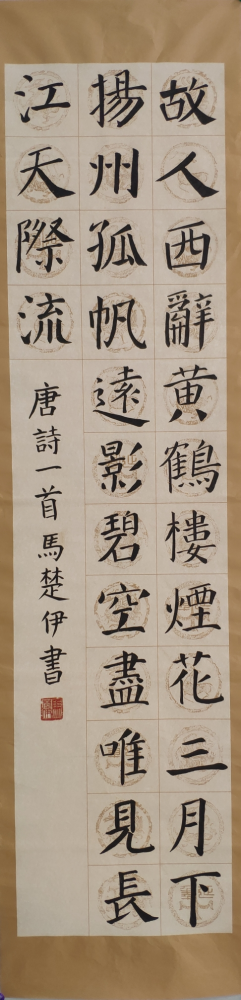 故人西辭黄鶴樓煙花三月下
揚州孤帆遠影碧空盡唯見長
江天際流
唐詩一首馬楚伊書